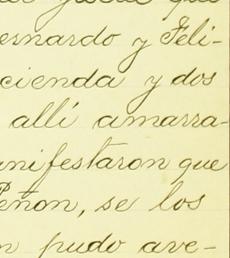 que
ernardo y Feli-
cienda y dos
allí amarra-
anifestaron que
Peñon, se los
n pudo ave-